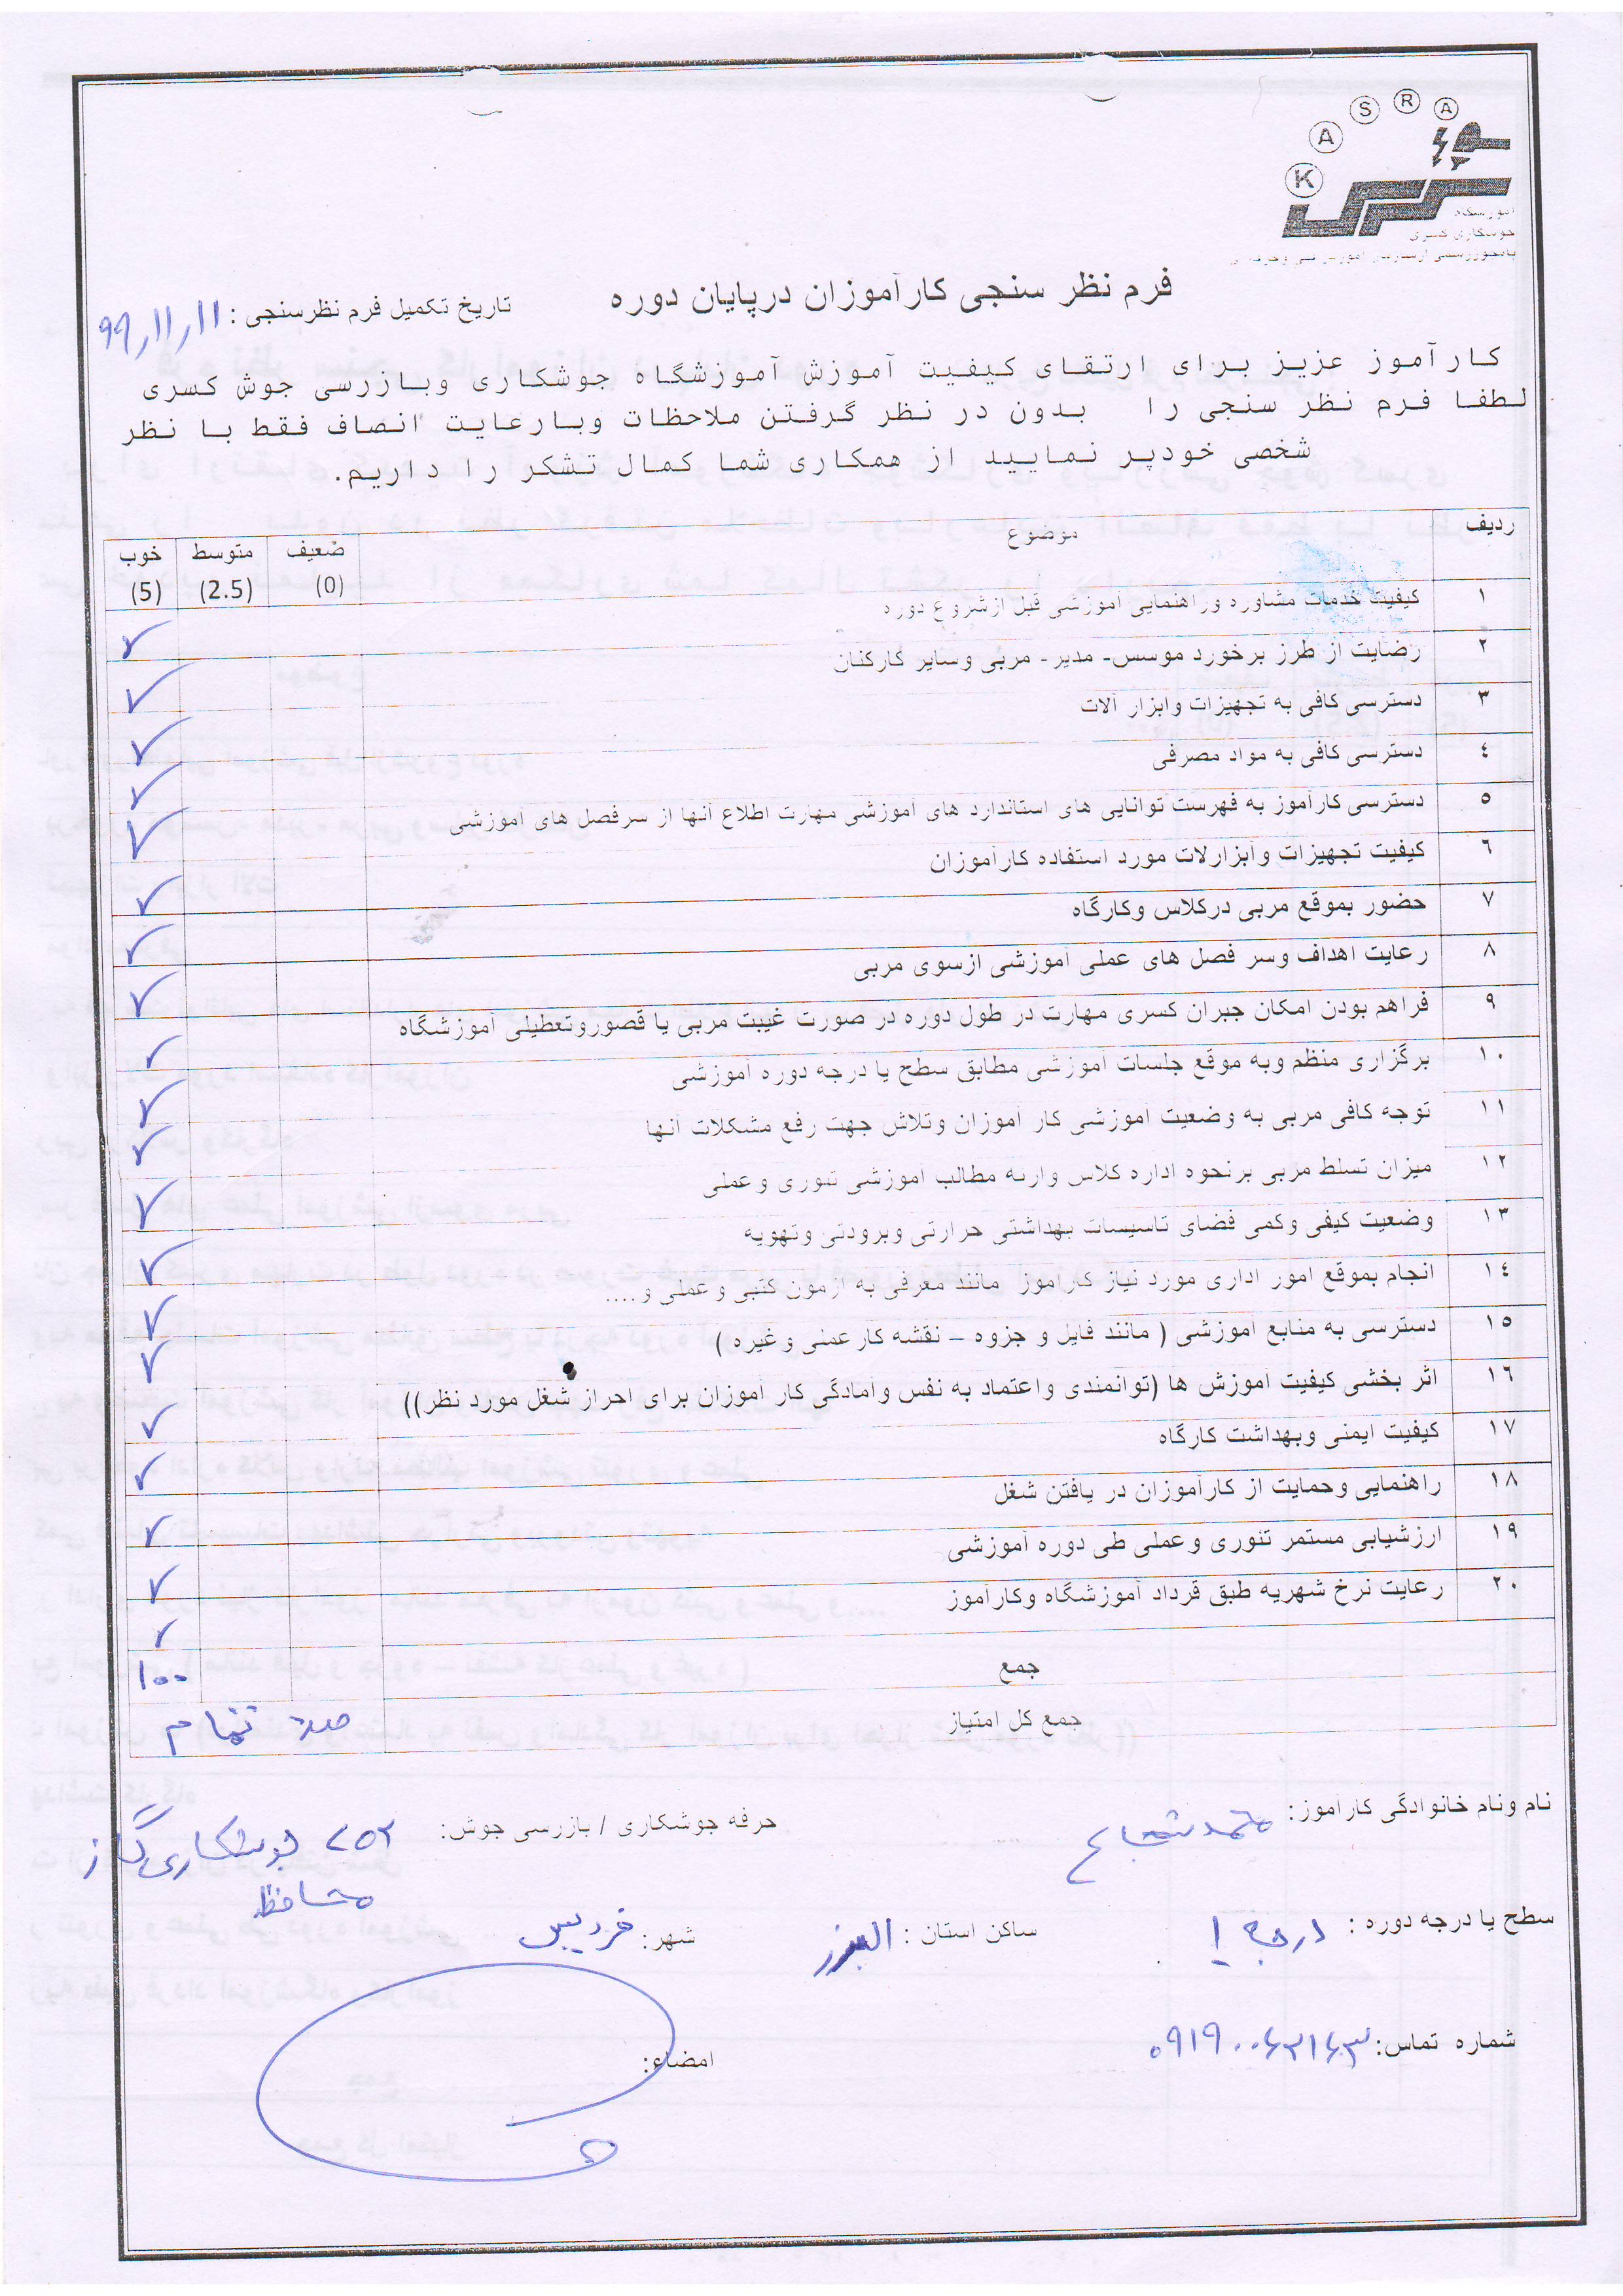 K A S R A
آموزشگاه
جوشکاری کسری
فرم نظر سنجی کارآموزان درپایان دوره
تاریخ تکمیل فرم نظرسنجی : ۹۹,۱۱,۱۱
کارآموز عزیز برای ارتقای کیفیت آموزش آموزشگاه جوشکاری وبازرسی جوش کسری
لطفا فرم نظر سنجی را بدون در نظر گرفتن ملاحظات وبارعایت انصاف فقط با نظر
شخصی خودپر نمایید از همکاری شما کمال تشکر را داریم.
ردیف موضوع ضعیف (0) متوسط (2.5) خوب (5)
۱ کیفیت خدمات مشاوره وراهنمایی آموزشی قبل ازشروع دوره ✓
۲ رضایت از طرز برخورد موسس- مدیر- مربی وسایر کارکنان ✓
۳ دسترسی کافی به تجهیزات وابزار آلات ✓
٤ دسترسی کافی به مواد مصرفی ✓
٥ دسترسی کارآموز به فهرست توانایی های استاندارد های آموزشی مهارت اطلاع آنها از سرفصل های آموزشی ✓
٦ کیفیت تجهیزات وابزارلات مورد استفاده کارآموزان ✓
۷ حضور بموقع مربی درکلاس وکارگاه ✓
۸ رعایت اهداف وسر فصل های عملی آموزشی ازسوی مربی ✓
۹ فراهم بودن امکان جبران کسری مهارت در طول دوره در صورت غیبت مربی یا قصوروتعطیلی آموزشگاه ✓
۱۰ برگزاری منظم وبه موقع جلسات آموزشی مطابق سطح یا درجه دوره آموزشی ✓
۱۱ توجه کافی مربی به وضعیت آموزشی کار آموزان وتلاش جهت رفع مشکلات آنها ✓
۱۲ میزان تسلط مربی برنحوه اداره کلاس وارئه مطالب آموزشی تئوری و عملی ✓
۱۳ وضعیت کیفی وکمی فضای تاسیسات بهداشتی حرارتی وبرودتی وتهویه ✓
۱٤ انجام بموقع امور اداری مورد نیاز کارآموز مانند معرفی به آزمون کتبی و عملی و.... ✓
۱٥ دسترسی به منابع آموزشی ( مانند فایل و جزوه – نقشه کار عملی و غیره ) ✓
۱٦ اثر بخشی کیفیت آموزش ها (توانمندی واعتماد به نفس وآمادگی کار آموزان برای احراز شغل مورد نظر)) ✓
۱۷ کیفیت ایمنی وبهداشت کارگاه ✓
۱۸ راهنمایی وحمایت از کارآموزان در یافتن شغل ✓
۱۹ ارزشیابی مستمر تئوری و عملی طی دوره آموزشی ✓
۲۰ رعایت نرخ شهریه طبق قرداد آموزشگاه وکارآموز ✓
جمع ۱۰۰
جمع کل امتیاز صد تمام
نام ونام خانوادگی کارآموز: محمد شجاع حرفه جوشکاری / بازرسی جوش: جوشکاری گاز
محافظ
سطح یا درجه دوره : درجه ۱ ساکن استان : البرز شهر: فردیس
شماره تماس: امضاء: